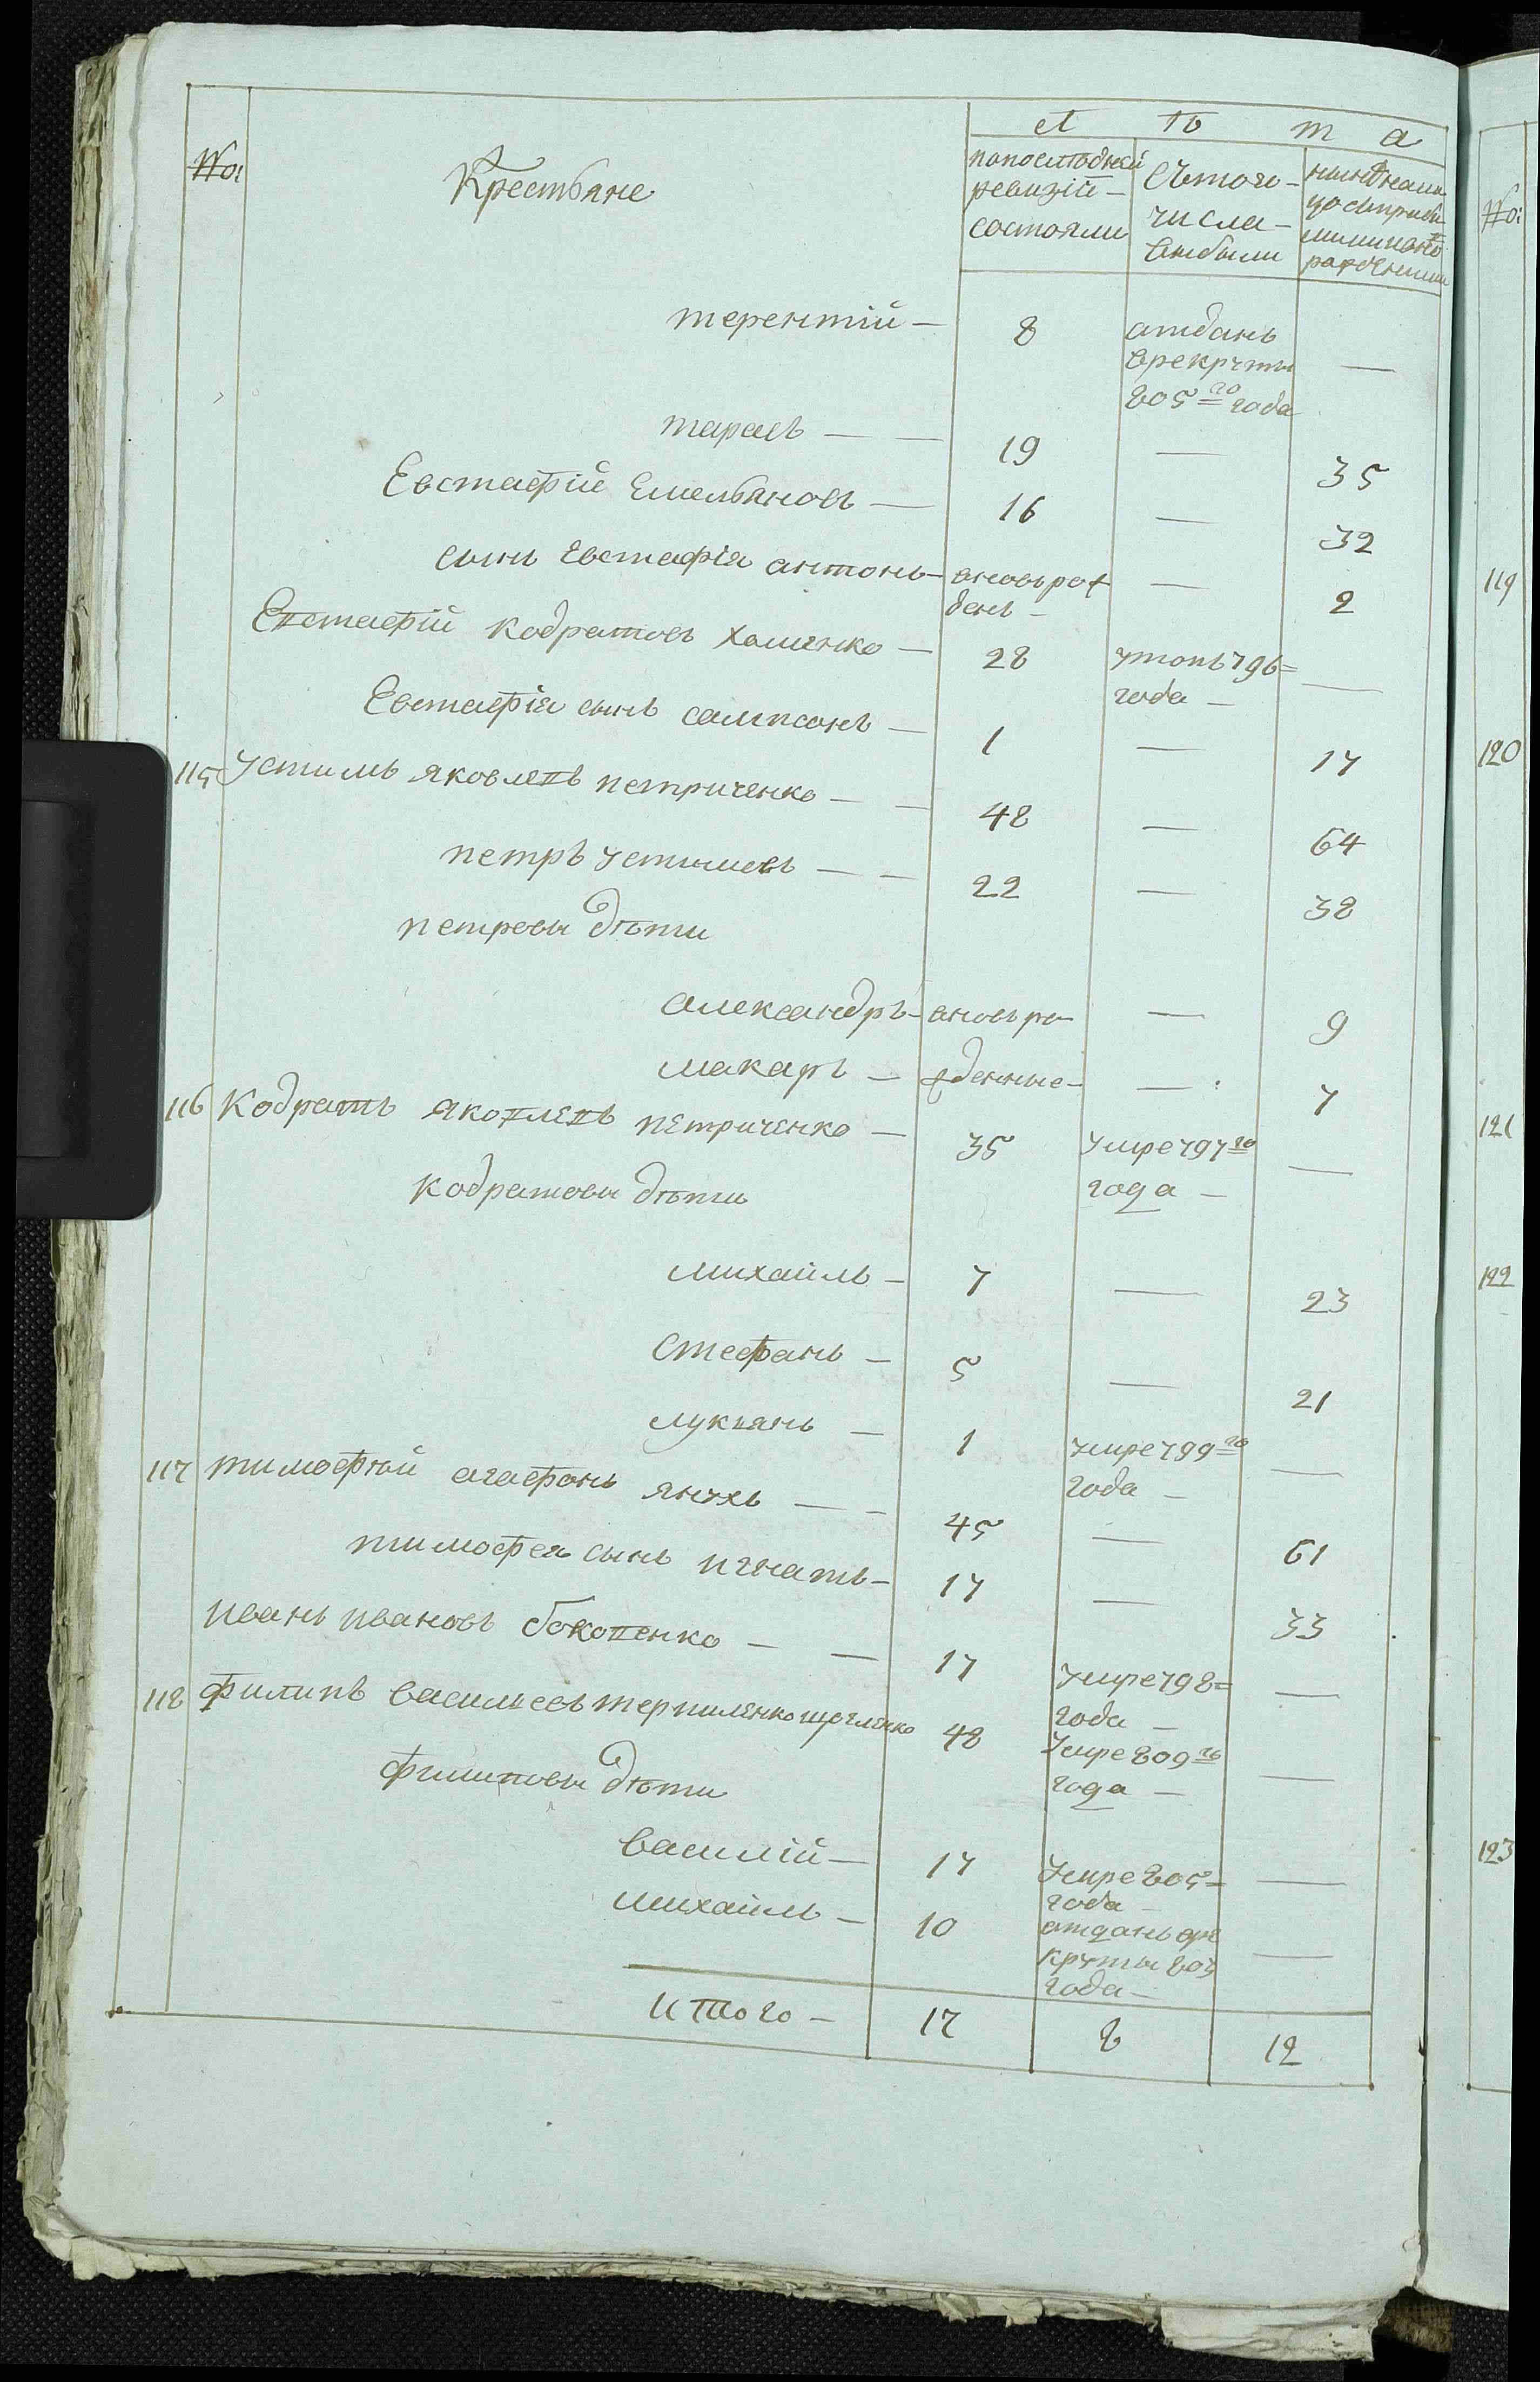 Л ѣ т а
№: Крестьяне попоследней ревизіи состояли Ѣстого числа выбыли
терентій — 8 атданъ врекруты 805го года —
тарасъ — — 19 — 35
Евстафій Емельяновъ — 16 — 32
сынъ Евстафія антонъ — вновьрожденъ — — 2
Евстафій кодратовъ хоменко — 28 утопъ 796 = года — —
Евстафія сынъ сампсонъ — 1 — 17
115 Устимъ яковлевъ петриченко — — 48 — 64
петръ устимовъ — — 22 — 38
петровы дѣти
александръ — вновь ро- — 9
макаръ — жденные — — 7
116 Кодратъ яковлевъ петриченко — 35 умре 797го года — —
кодратовы дѣти
михаилъ — 7 — 23
Стефанъ — 5 — 21
лукъянъ — 1 умре 799го года — —
117 тимофѣй агафонъ янухъ — — 45 — 61
тимофея сынъ игнатъ — 17 — 33
иванъ ивановъ боковенко — — 17 умре 798 = года — —
118 филипъ васильевъ терпиленко 48 умре 809го года — —
филиповы дѣти
василій — 17 умре 805 = года — —
михаилъ — 10 атданъ вре круты 803 года — —
Итого — 17 8 12
№:
119
120
121
122
123